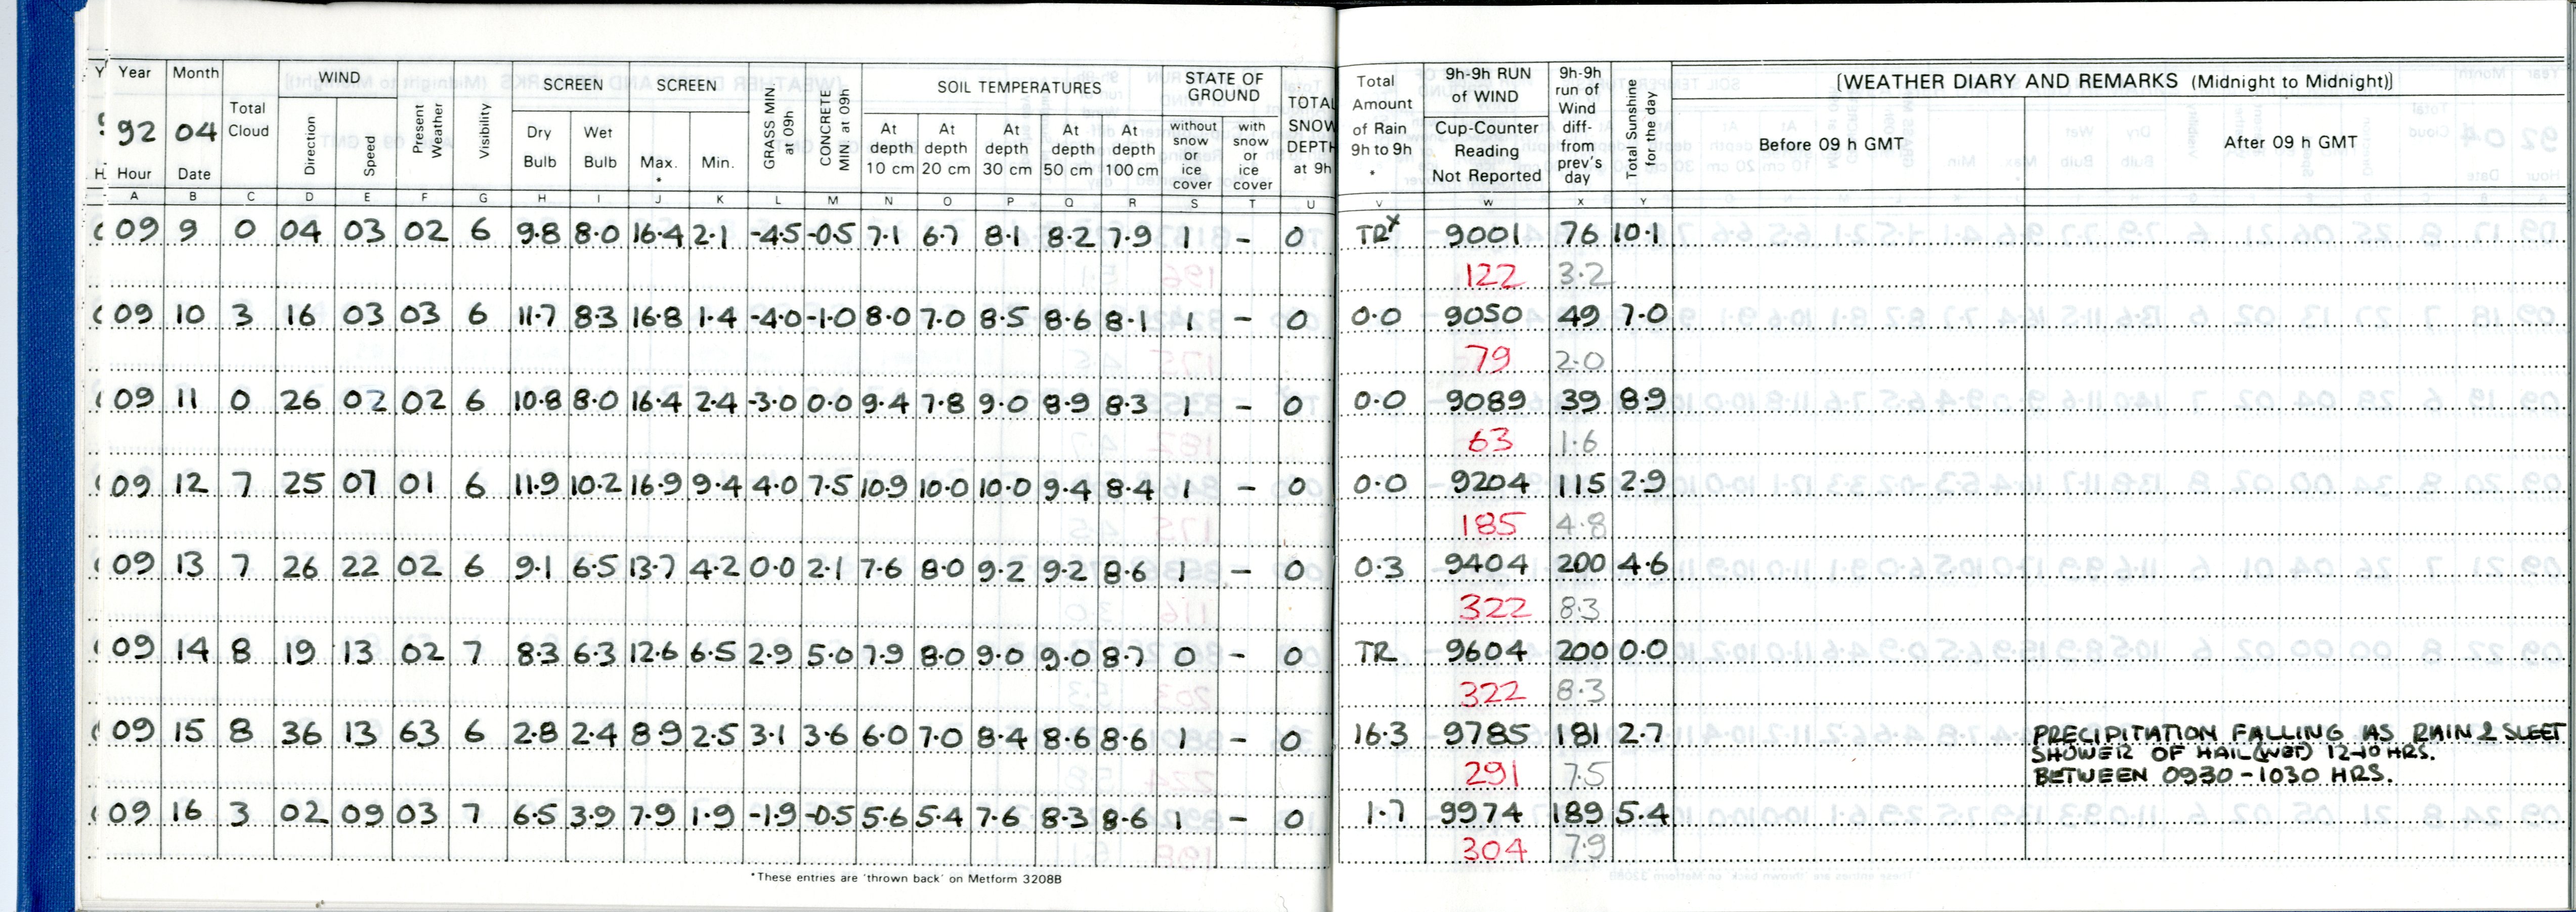 Year Month WIND SCREEN SCREEN SOIL TEMPERATURES STATE OF GROUND
92 04 Total Cloud Direction Speed Present Weather Visibility Dry Bulb Wet Bulb Max. * Min. GRASS MIN at 09h CONCRETE MIN at 09h At depth 10 cm At depth 20 cm At depth 30 cm At depth 50 cm At depth 100 cm without snow or ice cover with snow or ice cover TOTAL SNOW DEPTH at 9h
Hour Date
A B C D E F G H I J K L M N O P Q R S T U
Total Amount of Rain 9h to 9h * 9h-9h RUN of WIND Cup-Counter Reading Not Reported 9h-9h run of Wind diff- from prev's day Total Sunshine for the day [WEATHER DIARY AND REMARKS (Midnight to Midnight)]
Before 09 h GMT After 09 h GMT
V W X Y
09 9 0 04 03 02 6 9.8 8.0 16.4 2.1 -4.5 -0.5 7.1 6.7 8.1 8.2 7.9 1 - 0 TRx 9001 76 10.1
122 3.2
09 10 3 16 03 03 6 11.7 8.3 16.8 1.4 -4.0 -1.0 8.0 7.0 8.5 8.6 8.1 1 - 0 0.0 9050 49 7.0
79 2.0
09 11 0 26 02 02 6 10.8 8.0 16.4 2.4 -3.0 0.0 9.4 7.8 9.0 8.9 8.3 1 - 0 0.0 9089 39 8.9
63 1.6
09 12 7 25 07 01 6 11.9 10.2 16.9 9.4 4.0 7.5 10.9 10.0 10.0 9.4 8.4 1 - 0 0.0 9204 115 2.9
185 4.8
09 13 7 26 22 02 6 9.1 6.5 13.7 4.2 0.0 2.1 7.6 8.0 9.2 9.2 8.6 1 - 0 0.3 9404 200 4.6
322 8.3
09 14 8 19 13 02 7 8.3 6.3 12.6 6.5 2.9 5.0 7.9 8.0 9.0 9.0 8.7 0 - 0 TR 9604 200 0.0
322 8.3
09 15 8 36 13 63 6 2.8 2.4 8.9 2.5 3.1 3.6 6.0 7.0 8.4 8.6 8.6 1 - 0 16.3 9785 181 2.7 PRECIPITATION FALLING AS RAIN & SLEET
SHOWER OF HAIL (WET) 12-10 HRS.
291 7.5 BETWEEN 0930 - 1030 HRS.
09 16 3 02 09 03 7 6.5 3.9 7.9 1.9 -1.9 -0.5 5.6 5.4 7.6 8.3 8.6 1 - 0 1.7 9974 189 5.4
304 7.9
*These entries are 'thrown back' on Metform 3208B